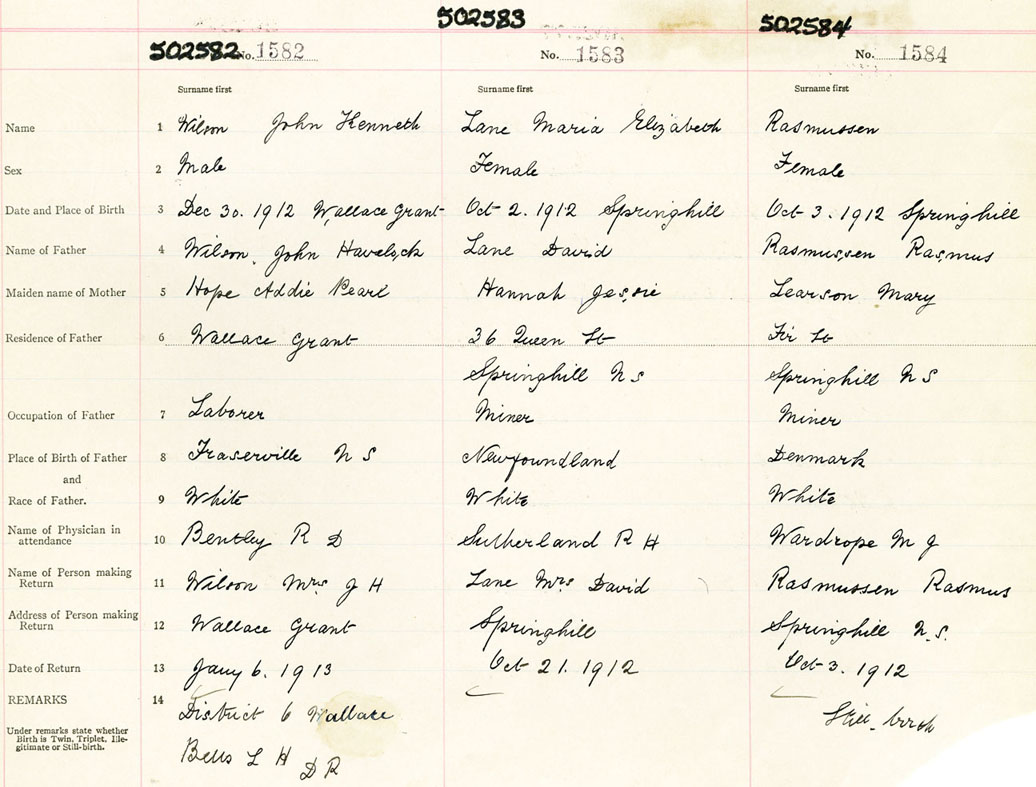 502582 502583 502584
No. 1582 No. 1583 No. 1584
Surname first Surname first Surname first
Name 1 Wilson John Kenneth Lane Maria Elizabeth Rasmussen
Sex 2 Male Female Female
Date and Place of Birth 3 Dec 30. 1912 Wallace Grant Oct 2. 1912 Springhill Oct 3. 1912 Springhill
Name of Father 4 Wilson, John Havelock Lane David Rasmussen Rasmus
Maiden name of Mother 5 Hope Addie Pearl Hannah Jessie Learson Mary
Residence of Father 6 Wallace Grant 36 Queen St Fir St
Springhill N S Springhill N S
Occupation of Father 7 Laborer Miner Miner
Place of Birth of Father 8 Fraserville N S Newfoundland Denmark
and
Race of Father. 9 White White White
Name of Physician in
attendance 10 Bentley R D Sutherland R H Wardrope M J
Name of Person making
Return 11 Wilson Mrs J H Lane Mrs David Rasmussen Rasmus
Address of Person making
Return 12 Wallace Grant Springhill Springhill N.S.
Date of Return 13 Jany 6. 1913 Oct 21. 1912 Oct 3. 1912
REMARKS 14 District 6 Wallace Still-birth
Under remarks state whether
Birth is Twin, Triplet, Ille-
gitimate or Still-birth.
Bells L H D R